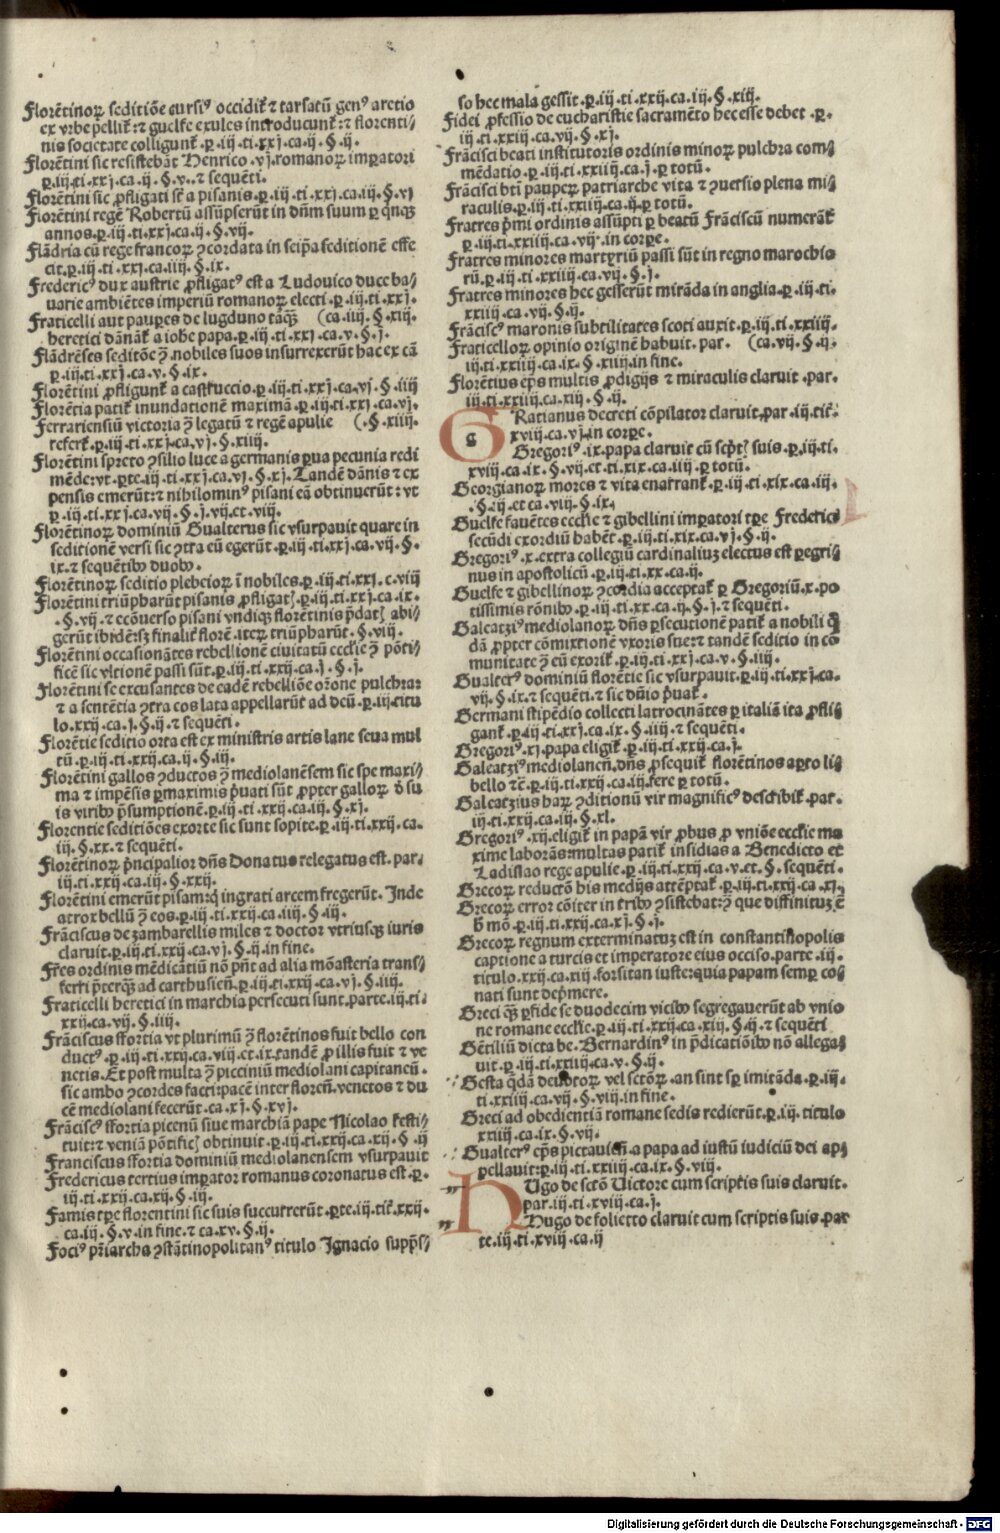 Florētinoꝝ seditiōe cursiꝰ occidit̃ ⁊ tarlatū genꝰ aretio
ex vrbe pellit̃:⁊ guelfe exules introducunt̃:⁊ florenti⸗
nis societate colligunt̃.ꝑ.iij.ti.xxj.ca.ij.§.ij.
Florētini sic resistebāt Henrico.vj.romanoꝝ imꝑatori
ꝑ.iij.ti.xxj.ca.ij.§.v..⁊ sequēti.
Florētini sic ꝓfligati st̄ a pisanis.ꝑ.iij.ti.xxj.ca.iij.§.vj
Florētini regē Robertū assūpserūt in dn̄m suum ꝑ qn̄qꝫ
annos.ꝑ.iij.ti.xxj.ca.ij.§.vij.
Flādria cū rege francoꝝ ꝯcordata in seip̄a seditionē effe
cit.ꝑ.iij.ti.xxj.ca.iij.§.ix.
Fredericꝰ dux austrie ꝓfligatꝰ est a Ludouico duce ba⸗
uarie ambiētes imperiū romanoꝝ electi.ꝑ.iij.ti.xxj.
Fraticelli aut pauꝑes de lugduno tāqꝫ (ca.iij.§.xij.
heretici dānāt̃ a iohē papa.ꝑ.iij.ti.xxj.ca.v.§.j.
Flādrēses seditōe ꝯ̄.nobiles suos insurrexerūt hac ex cā
ꝑ.iij.ti.xxj.ca.v.§.ix.
Florētini ꝓfligunt̃ a castruccio.ꝑ.iij.ti.xxj.ca.vj.§.iiij
Florētia patit̃ inundationē maximā.ꝑ.iij.ti.xxj.ca.vj.
Ferrariensiū victoria ꝯ̄ legatū ⁊ regē apulie (.§.xiij.
refert̃.ꝑ.iij.ti.xxj.ca.vj.§.xiij.
Florētini spreto ꝯsilio luce a germanis ꝑua pecunia redi
mēde:vt.ꝑte.iij.ti.xxj.ca.vj.§.xj.Tandē dānis ⁊ ex
pensis emerūt:⁊ nihilominꝰ pisani eā obtinuerūt:vt
ꝑ.iij.ti.xxj.ca.vij.§.j.vij.et.viij.
Florētinoꝝ dominiū Gualterus sic vsurpauit quare in
seditionē versi sic ꝯtra eū egerūt.ꝑ.iij.ti.xxj.ca.vij.§.
ix.⁊ sequētibꝰ duobꝰ.
Florētinoꝝ seditio plebeioꝝ ī nobiles.ꝑ.iij.ti.xxj.c.viij
Florētini triūpharūt pisanis ꝓfligatꝭ.ꝑ.iij.ti.xxj.ca.ix.
.§.vij.⁊ ecōuerso pisani vndiqꝫ florētinis p̄datꝭ abi⸗
gerūt ibidē:sꝫ finalit̃ florē.iteꝝ triūpharūt.§.viij.
Florētini occasionātes rebellionē ciuitatū eccl̄ie ꝯ̄ pōti⸗
ficē sic vltionē passi sūt.ꝑ.iij.ti.xxij.ca.j.§.j.
Florētini se excusantes de eadē rebelliōe or̄one pulchrar
⁊ a sentētia ꝯtra eos lata appellarūt ad deū.ꝑ.iij.titu
lo.xxij.ca.j.§.ij.⁊ sequēti.
Florētie seditio orta est ex ministris artis lane seua mul
tū.ꝑ.iij.ti.xxij.ca.ij.§.iij.
Florētini gallos ꝯductos ꝯ̄ mediolanēsem sic spe maxi⸗
ma ⁊ impēsis ꝑmaximis p̄uati sūt ꝓpter galloꝝ d̄ su
is viribꝰ p̄sumptionē.ꝑ.iij.ti.xxij.ca.iij.§.xj.
Florentie seditiōes exorte sic sunt sopite.ꝑ.iij.ti.xxij.ca.
iij.§.xx.⁊ sequēti.
Florētinoꝝ p̄ncipalior dn̄s Donatus relegatus est.par.
iij.ti.xxij.ca.iij.§.xxij.
Florētini emerūt pisam:qͥ ingrati arcem fregerūt.Inde
atrox bellū ꝯ̄ eos.ꝑ.iij.ti.xxij.ca.iiij.§.iij.
Frāciscus de zambarellis miles ⁊ doctor vtriusqꝫ iuris
claruit.ꝑ.iij.ti.xxij.ca.vj.§.ij.in fine.
Fr̄es ordinis mēdicātiū nō pn̄t ad alia mōasteria trans⸗
ferri p̄terqꝫ ad carthusieñ.ꝑ.iij.ti.xxij.ca.vj.§.iij.
Fraticelli heretici in marchia persecuti sunt.parte.iij.ti.
xxij.ca.vij.§.iij.
Frāciscus sfortia vt plurimū ꝯ̄ florētinos fuit bello con
ductꝰ.ꝑ.iij.ti.xxij.ca.viij.et.ix.tandē ꝓ illis fuit ⁊ ve
netis.Et post multa ꝯ̄ picciniū mediolani capitaneū.
sic ambo ꝯcordes facti:pacē inter floreñ.venetos ⁊ du
cē mediolani fecerūt.ca.xj.§.xvj.
Frāciscꝰ sfortia picenū siue marchiā pape Nicolao resti⸗
tuit:⁊ veniā pōtificꝭ obtinuit.ꝑ.iij.ti.xxij.ca.xij.§.ij
Franciscus sfortia dominiū mediolanensem vsurpauit
Fredericus tertius imꝑator romanus coronatus est.ꝑ.
iij.ti.xxij.ca.xij.§.iij.
Famis tꝑe florentini sic suis succurrerūt.ꝑte.iij.tit̃.xxij.
ca.iij.§.v.in fine.⁊ ca.xv.§.ij.
Focꝰ pr̄iarcha ꝯstātinopolitanꝰ titulo Ignacio supp̄s⸗
so hec mala gessit.ꝑ.iij.ti.xxij.ca.iij.§.xiij.
Fidei ꝓfessio de eucharistie sacramēto hec esse debet.ꝑ.
iij.ti.xxiij.ca.vij.§.xj.
Frācisci beati institutoris ordinis minoꝝ pulchra com⸗
mēdatio.ꝑ.iij.ti.xxiiij.ca.j.ꝑ totū.
Frācisci bt̄i pauꝑeꝝ patriarche vita ⁊ ꝯuersio plena mi⸗
raculis.ꝑ.iij.ti.xxiiij.ca.ij.ꝑ totū.
Fratres p̄mi ordinis assūpti ꝑ beatū Frāciscū numerāt̃
ꝑ.iij.ti.xxiiij.ca.vij.in corꝑe.
Fratres minores martyriū passi sūt in regno marochio
rū.ꝑ.iij.ti.xxiiij.ca.vij.§.j.
Fratres minores hec gesserūt mirāda in anglia.ꝑ.iij.ti.
xxiiij.ca.vij.§.ij.
Frāciscꝰ maronis subtilitates scoti auxit.ꝑ.iij.ti.xxiiij.
Fraticelloꝝ opinio originē habuit.par. (ca.vij.§.ij.
iij.ti.xxiiij.ca.ix.§.xiij.in fine.
Florētius ep̄s multis ꝓdigijs ⁊ miraculis claruit.par.
iij.ti.xxiij.ca.xij.§.ij.
GRatianus decreti cōpilator claruit.par.iij.tit̃.
xviij.ca.vj.in corꝑe.
Gregoriꝰ.ix.papa claruit cū scptꝭ suis.ꝑ.iij.ti.
xviij.ca.ix.§.vij.et.ti.xix.ca.iiij.ꝑ totū.
Georgianoꝝ mores ⁊ vita enarrant̃.ꝑ.iij.ti.xix.ca.iij.
.§.ij.et ca.viij.§.ix.
Guelfe fauētes eccl̄ie ⁊ gibellini imꝑatori tꝑe Frederici
secūdi exordiū habēt.ꝑ.iij.ti.xix.ca.vj.§.ij.
Gregoriꝰ.x.extra collegiū cardinaliuꝫ electus est ꝑegri⸗
nus in apostolicū.ꝑ.iij.ti.xx.ca.ij.
Guelfe ⁊ gibellinoꝝ ꝯcordia acceptat̃ ꝑ Gregoriū.x.po
tissimis rōnibꝰ.ꝑ.iij.ti.xx.ca.ij.§.j.⁊ sequēti.
Galeatziꝰ mediolanoꝝ dn̄s ꝑsecutionē patit̃ a nobili q̄
dā ꝓpter cōmixtionē vxoris sue:⁊ tandē seditio in cō
munitate ꝯ̄ eū exorit̃.ꝑ.iij.ti.xxj.ca.v.§.iij.
Gualterꝰ dominiū florētie sic vsurpauit.ꝑ.iij.ti.xxj.ca.
vij.§.ix.⁊ sequēti.⁊ sic dn̄io p̄uat̃.
Germani stipēdio collecti latrocināntes ꝑ italiā ita ꝓfli⸗
gant̃.ꝑ.iij.ti.xxj.ca.ix.§.iij.⁊ sequēti.
Gregoriꝰ.xj.papa eligit̃.ꝑ.iij.ti.xxij.ca.j.
Galeatziꝰ mediolaneñ.dn̄s ꝓsequit̃ florētinos aꝑto li⸗
bello ⁊c̄.ꝑ.iij.ti.xxij.ca.iij.fere ꝑ totū.
Galeatzius haꝝ ꝯditionū vir magnificꝰ describit̃.par.
iij.ti.xxij.ca.iij.§.xl.
Gregoriꝰ.xij.eligit̃ in papā vir ꝓbus ꝓ vniōe eccl̄ie ma
xime laborās:multas patit̃ insidias a Benedicto et
Ladislao rege apulie.ꝑ.iij.ti.xxij.ca.v.et.§.sequēti.
Grecoꝝ reductō his medijs attēptat̃.ꝑ.iij.ti.xxij.ca.xj.
Grecoꝝ error cōiter in tribꝰ ꝯsistebat:ꝯ̄ que diffinituꝫ ē
h̄ mō.ꝑ.iij.ti.xxij.ca.xj.§.j.
Grecoꝝ regnum exterminatuꝫ est in constantinopolis
captione a turcis et imperatore eius occiso.parte.iij.
titulo.xxij.ca.xij.forsitan iuste:quia papam semꝑ co⸗
nati sunt dep̄mere.
Greci qꝫ ꝑfide se duodecim vicibꝰ segregauerūt ab vnio
ne romane eccl̄ie.ꝑ.iij.ti.xxij.ca.xiij.§.ij.⁊ sequēti
Gētiliū dicta be.Bernardinꝰ in p̄dicatiōibꝰ nō allega⸗
uit.ꝑ.iij.ti.xxiiij.ca.v.§.ij.
Gesta qͣdā deuotoꝝ vel sctōꝝ.an sint sꝑ imitāda.ꝑ.iij.
ti.xxiij.ca.vij.§.viij.in fine.
Greci ad obedientiā romane sedis redierūt.ꝑ.iij.titulo
xxiij.ca.ix.§.vij.
Gualterꝰ ep̄s pictauieñ.a papa ad iustū iudiciū dei ap⸗
pellauit:ꝑ.iij.ti.xxiiij.ca.ix.§.viij.
HUgo de sctō Victore cum scriptis suis claruit.
par.iij.ti.xviij.ca.j.
Hugo de folietto claruit cum scriptis suis.par
te.iij.ti.xviij.ca.ij
Digitalisierung gefördert durch die Deutsche Forschungsgemeinschaft - DFG